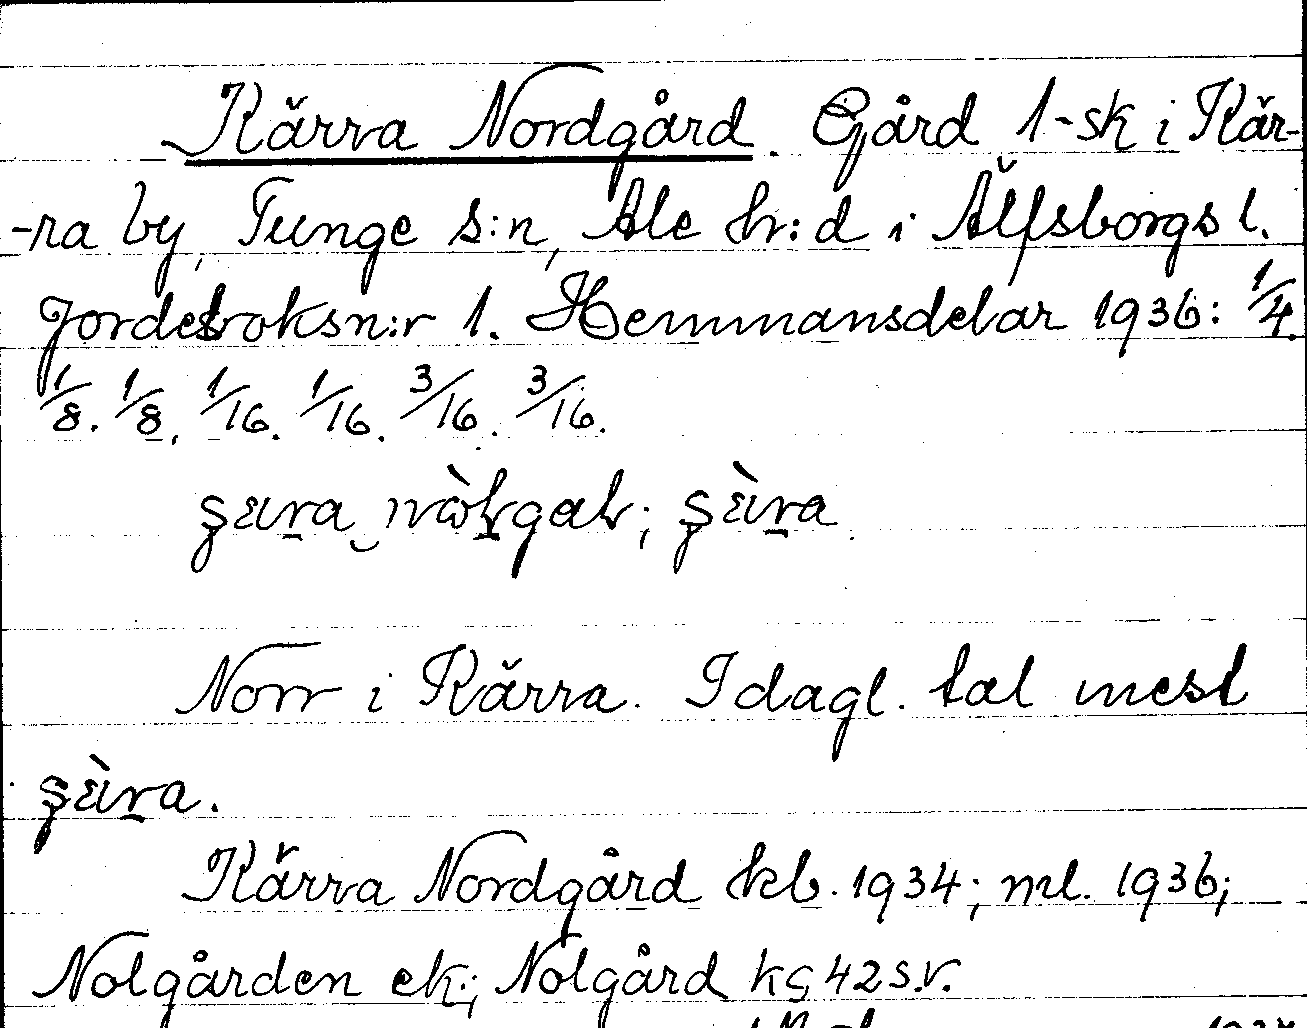 Kärra Nordgård. Gård 1-sk i Kär-
-ra by, Tunge s:n, Ale hr:d i Älfsborgs l.
Jordeboksn:r 1. Hemmansdelar 1936: 1/4.
1/8. 1/8. 1/16. 1/16. 3/16. 3/16.
Norr i Kärra. I dagl. tal mest
Kärra Nordgård kb. 1934; ml. 1936;
Nolgården ek.; Nolgård ks 42 s.v.